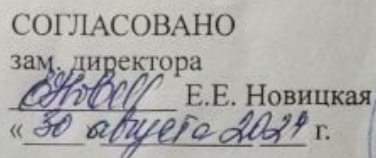 СОГЛАСОВАНО
зам. директора
Е.Е. Новицкая
«30 августа 2024 г.